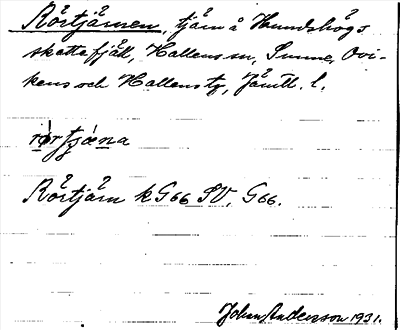 Rörtjärnen, tjärn å Hundshögs
skattefjäll, Hallens sn, Sunne, Ovi-
kens och Hallens tg, Jämtl. l.
Rörtjärn k G66 SV, G66.
John Anderson 1931.